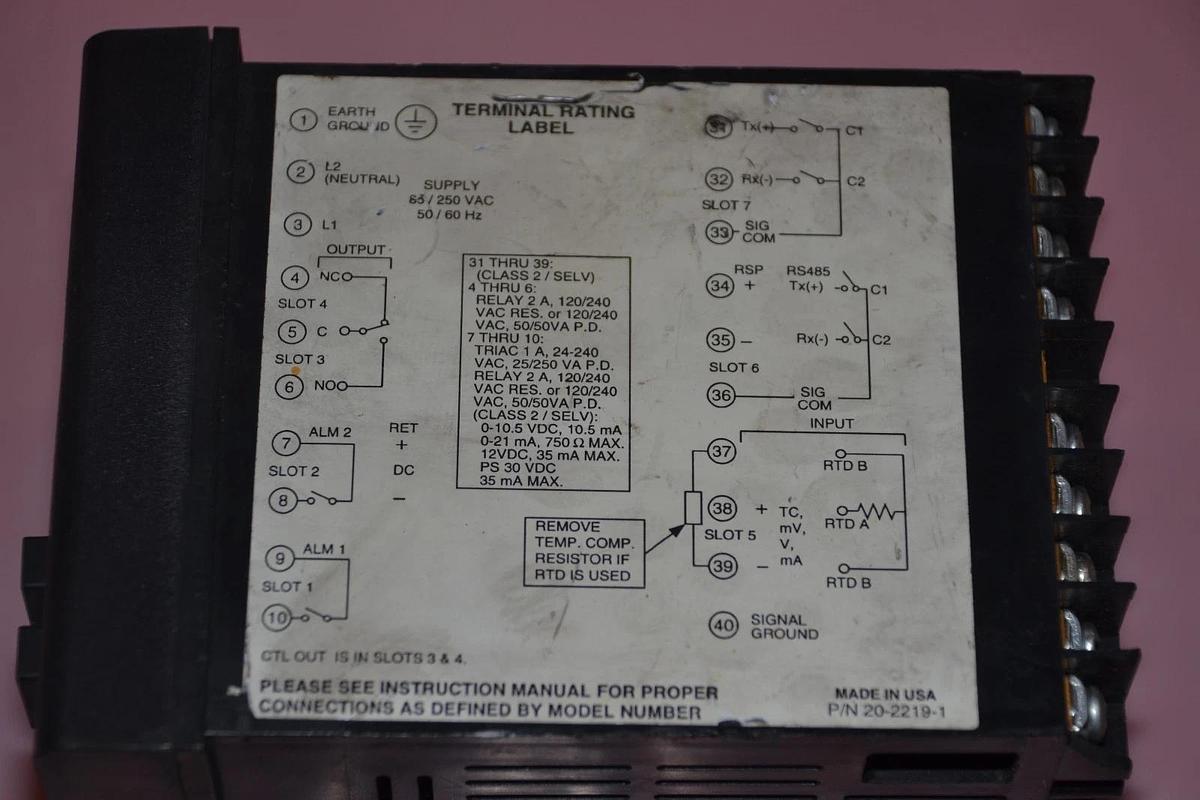 TERMINAL RATING
LABEL
1 EARTH
GROUND
2 L2
(NEUTRAL)
SUPPLY
85 / 250 VAC
50 / 60 Hz
3 L1
OUTPUT
4 NC
SLOT 4
5 C
SLOT 3
6 NO
7 ALM 2
SLOT 2
8
RET
+
DC
–
9 ALM 1
SLOT 1
10
CTL OUT IS IN SLOTS 3 & 4.
31 THRU 39:
(CLASS 2 / SELV)
4 THRU 6:
RELAY 2 A, 120/240
VAC RES. or 120/240
VAC, 50/50VA P.D.
7 THRU 10:
TRIAC 1 A, 24-240
VAC, 25/250 VA P.D.
RELAY 2 A, 120/240
VAC RES. or 120/240
VAC, 50/50VA P.D.
(CLASS 2 / SELV):
0-10.5 VDC, 10.5 mA
0-21 mA, 750 Ω MAX.
12VDC, 35 mA MAX.
PS 30 VDC
35 mA MAX.
REMOVE
TEMP. COMP.
RESISTOR IF
RTD IS USED
31 Tx(+) C1
32 Rx(-) C2
SLOT 7
33 SIG
COM
34 RSP
+
RS485
Tx(+) C1
35 – Rx(-) C2
SLOT 6
36 SIG
COM
INPUT
37 RTD B
38 + TC,
mV,
V,
mA
RTD A
SLOT 5
39 –
RTD B
40 SIGNAL
GROUND
PLEASE SEE INSTRUCTION MANUAL FOR PROPER
CONNECTIONS AS DEFINED BY MODEL NUMBER
MADE IN USA
P/N 20-2219-1